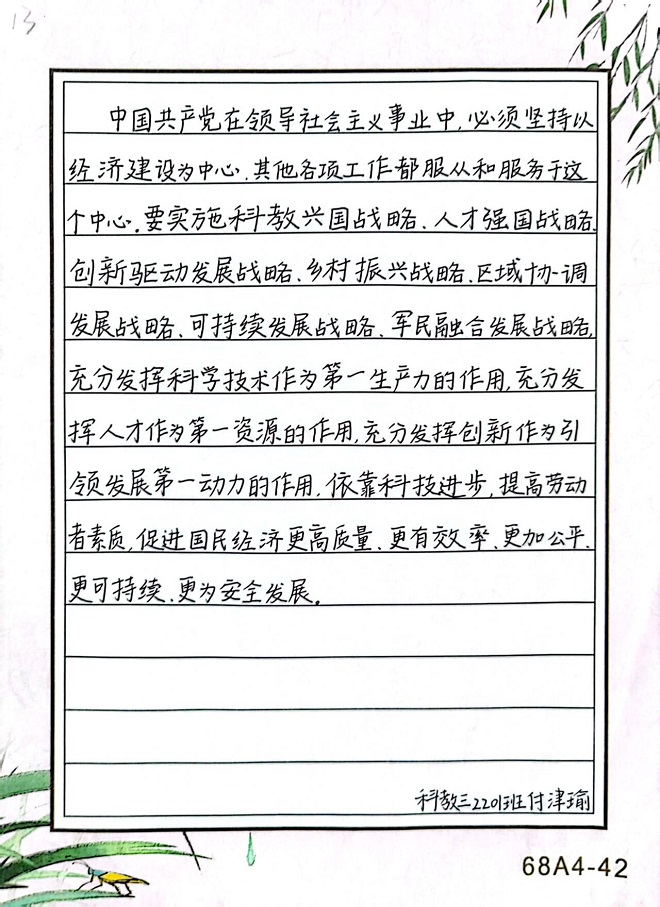 13
中国共产党在领导社会主义事业中,必须坚持以
经济建设为中心,其他各项工作都服从和服务于这
个中心。要实施科教兴国战略、人才强国战略、
创新驱动发展战略、乡村振兴战略、区域协调
发展战略、可持续发展战略、军民融合发展战略,
充分发挥科学技术作为第一生产力的作用,充分发
挥人才作为第一资源的作用,充分发挥创新作为引
领发展第一动力的作用,依靠科技进步,提高劳动
者素质,促进国民经济更高质量、更有效率、更加公平、
更可持续、更为安全发展。
科教三2201班付津瑜
68A4-42